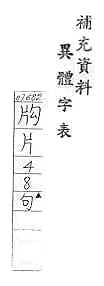 補充資料
異體字表
片
4
8
句▲